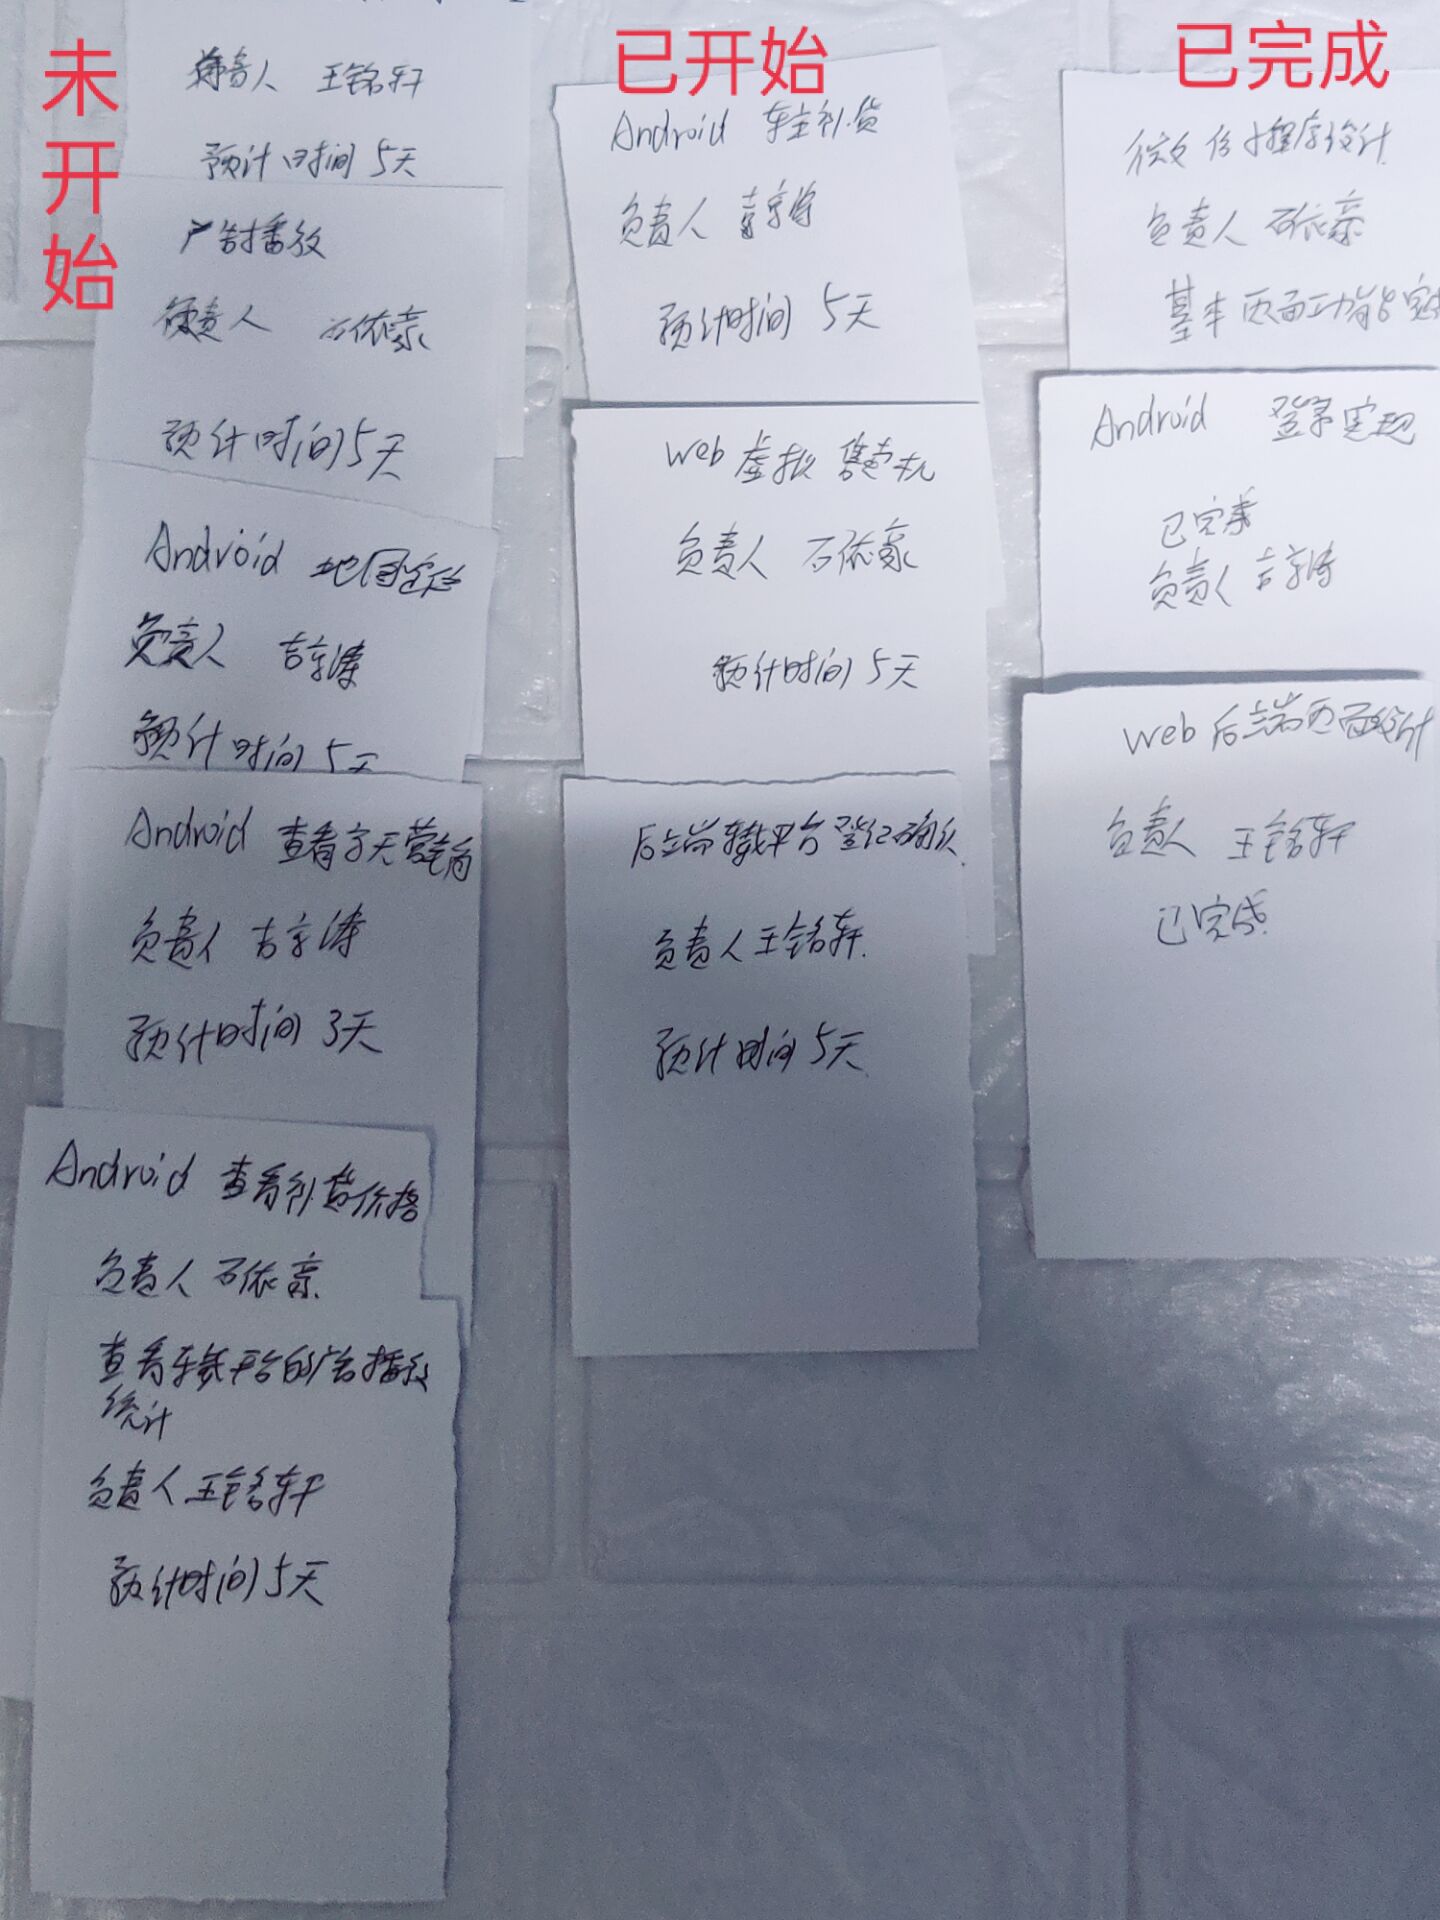 未开始
负责人 王铭轩
预计时间 5天
广告播放
负责人 石依豪
预计时间5天
Android 地图定位
负责人 吉京涛
预计时间 5天
Android 查看今天营销
负责人 吉京涛
预计时间 3天
Android 查看补货价格
负责人 石依豪
查看车载平台的广告播放
统计
负责人 王铭轩
预计时间 5天
已开始
Android 车主补货
负责人 吉京涛
预计时间 5天
Web 虚拟 售卖机
负责人 石依豪
预计时间 5天
后端车载平台登记确认
负责人 王铭轩
预计时间 5天
已完成
微信小程序设计
负责人 石依豪
基本页面功能完
Android 登录实现
已完成
负责人 吉京涛
Web 后端页面设计
负责人 王铭轩
已完成